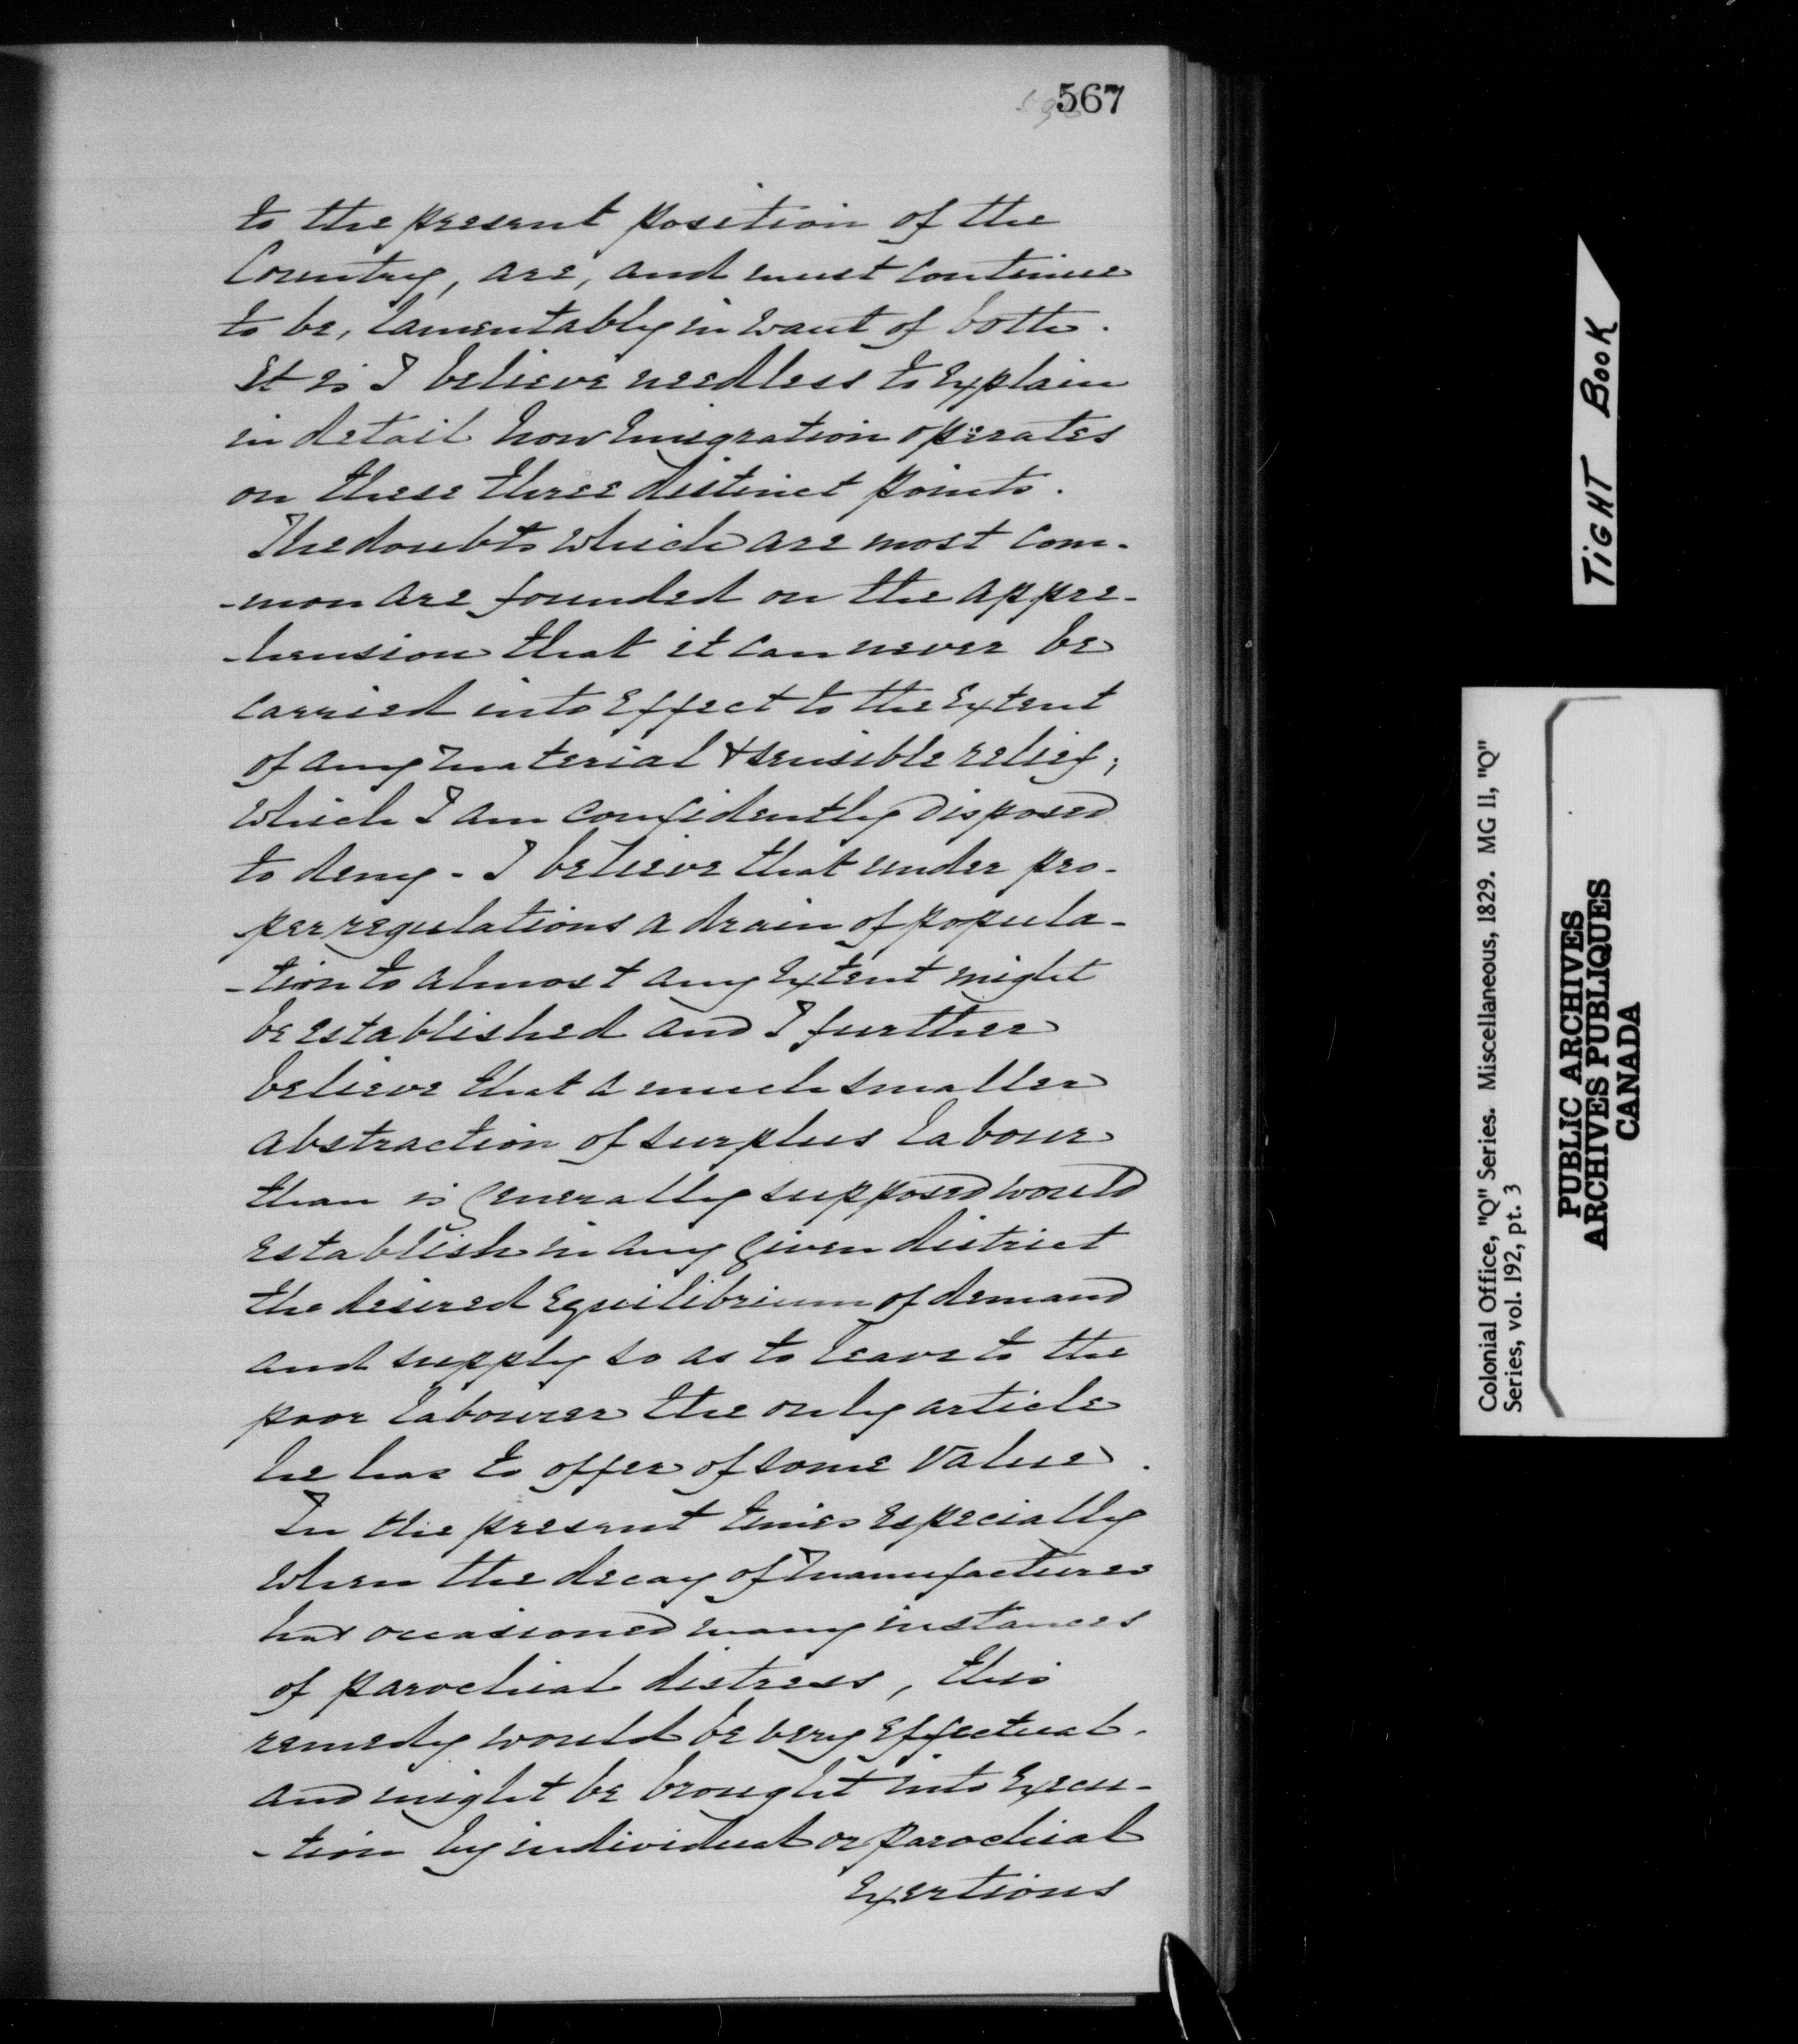 567
to the present position of the
Country, are, and must continue
to be, lamentably in want of both.
It is I believe needless to explain
in detail how Emigration operates
on these three distinct points.
The doubts which are most com-
-mon are founded on the appre-
-hension that it can never be
carried into effect to the extent
of any material & sensible relief;
which I am confidently disposed
to deny - I believe that under pro-
per regulations a drain of popula-
-tion to almost any extent might
be established and I further
believe that a much smaller
abstraction of surplus labour
than is generally supposed would
establish in any given district
the desired equilibrium of demand
and supply so as to leave to the
poor labourer the only article
he has to offer of some value.
In the present times especially
when the decay of Manufactures
has occasioned many instances
of parochial distress, this
remedy would be very effectual.
and might be brought into execu-
-tion by individual or parochial
exertions
TiGHT BOOK
Colonial Office, "Q" Series. Miscellaneous, 1829. MG 11, "Q"
Series, vol. 192, pt. 3
PUBLIC ARCHIVES
ARCHIVES PUBLIQUES
CANADA